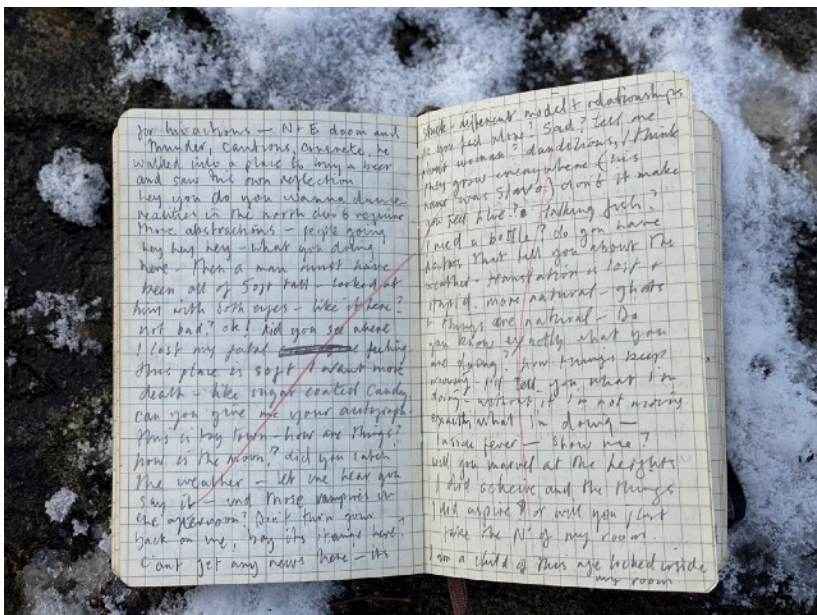 for his actions – N + E doom and
thunder, cautions, concrete, he
walked into a place to buy a beer
and saw his own reflection
hey you do you wanna dance
realities in the north don't require
more abstractions – people going
hey hey hey – what you doing
here – then a man must have
been all of 5oft tall – looked at
him with both eyes – like it here?
not bad? ok! did you see where
I lost my fatal feeling
this place is soft I want more
death – like sugar coated candy
can you give me your autograph.
this is toy town – how are things?
how is the moon? did you catch
the weather – let me hear you
say it – and those vampires in
the afternoon? Don't turn your
back on me, boy its strange here?
Cant get any news here – its
stuck – different model + relationships
do you feel alone? Sad? tell me
about woman? dandelions, I think
they grow everywhere (his
name was Slavo) don't it make
you feel alive? Talking fish?
I need a bottle? do you have
that tell you about the
weather – translation is lost +
stupid. more natural – ghosts
+ things are natural – Do
you know exactly what you
are doing? how things keep
moving – I'd tell you what I'm
doing – without it I'm not moving
exactly what I'm doing –
Inside fever – show me?
will you marvel at the heights
I did acheive and the things
I did aspire or will you just
take the No of my room.
I am a child of this age locked inside
my room